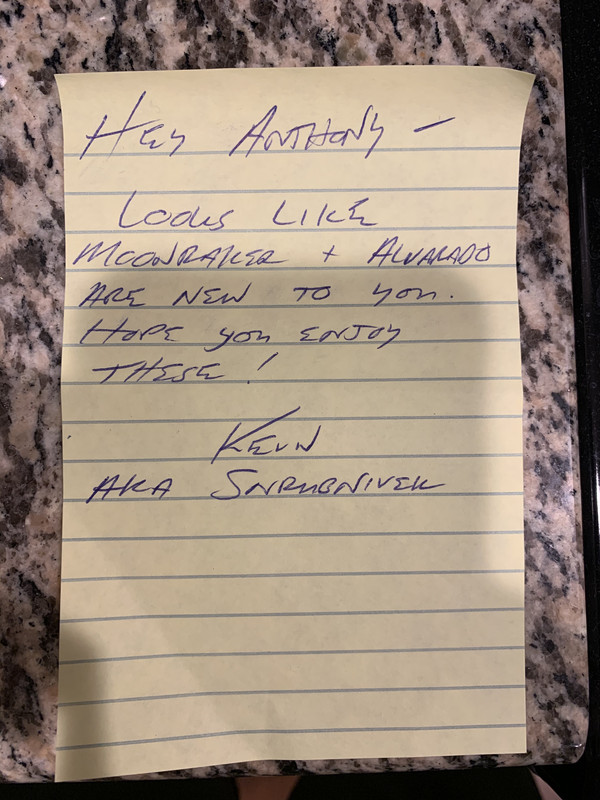 HEY ANTHONY —
LOOKS LIKE
MOONRAKER + ALVARADO
ARE NEW TO YOU.
HOPE YOU ENJOY
THESE!
KEVIN
AKA SNRUBNIVEK